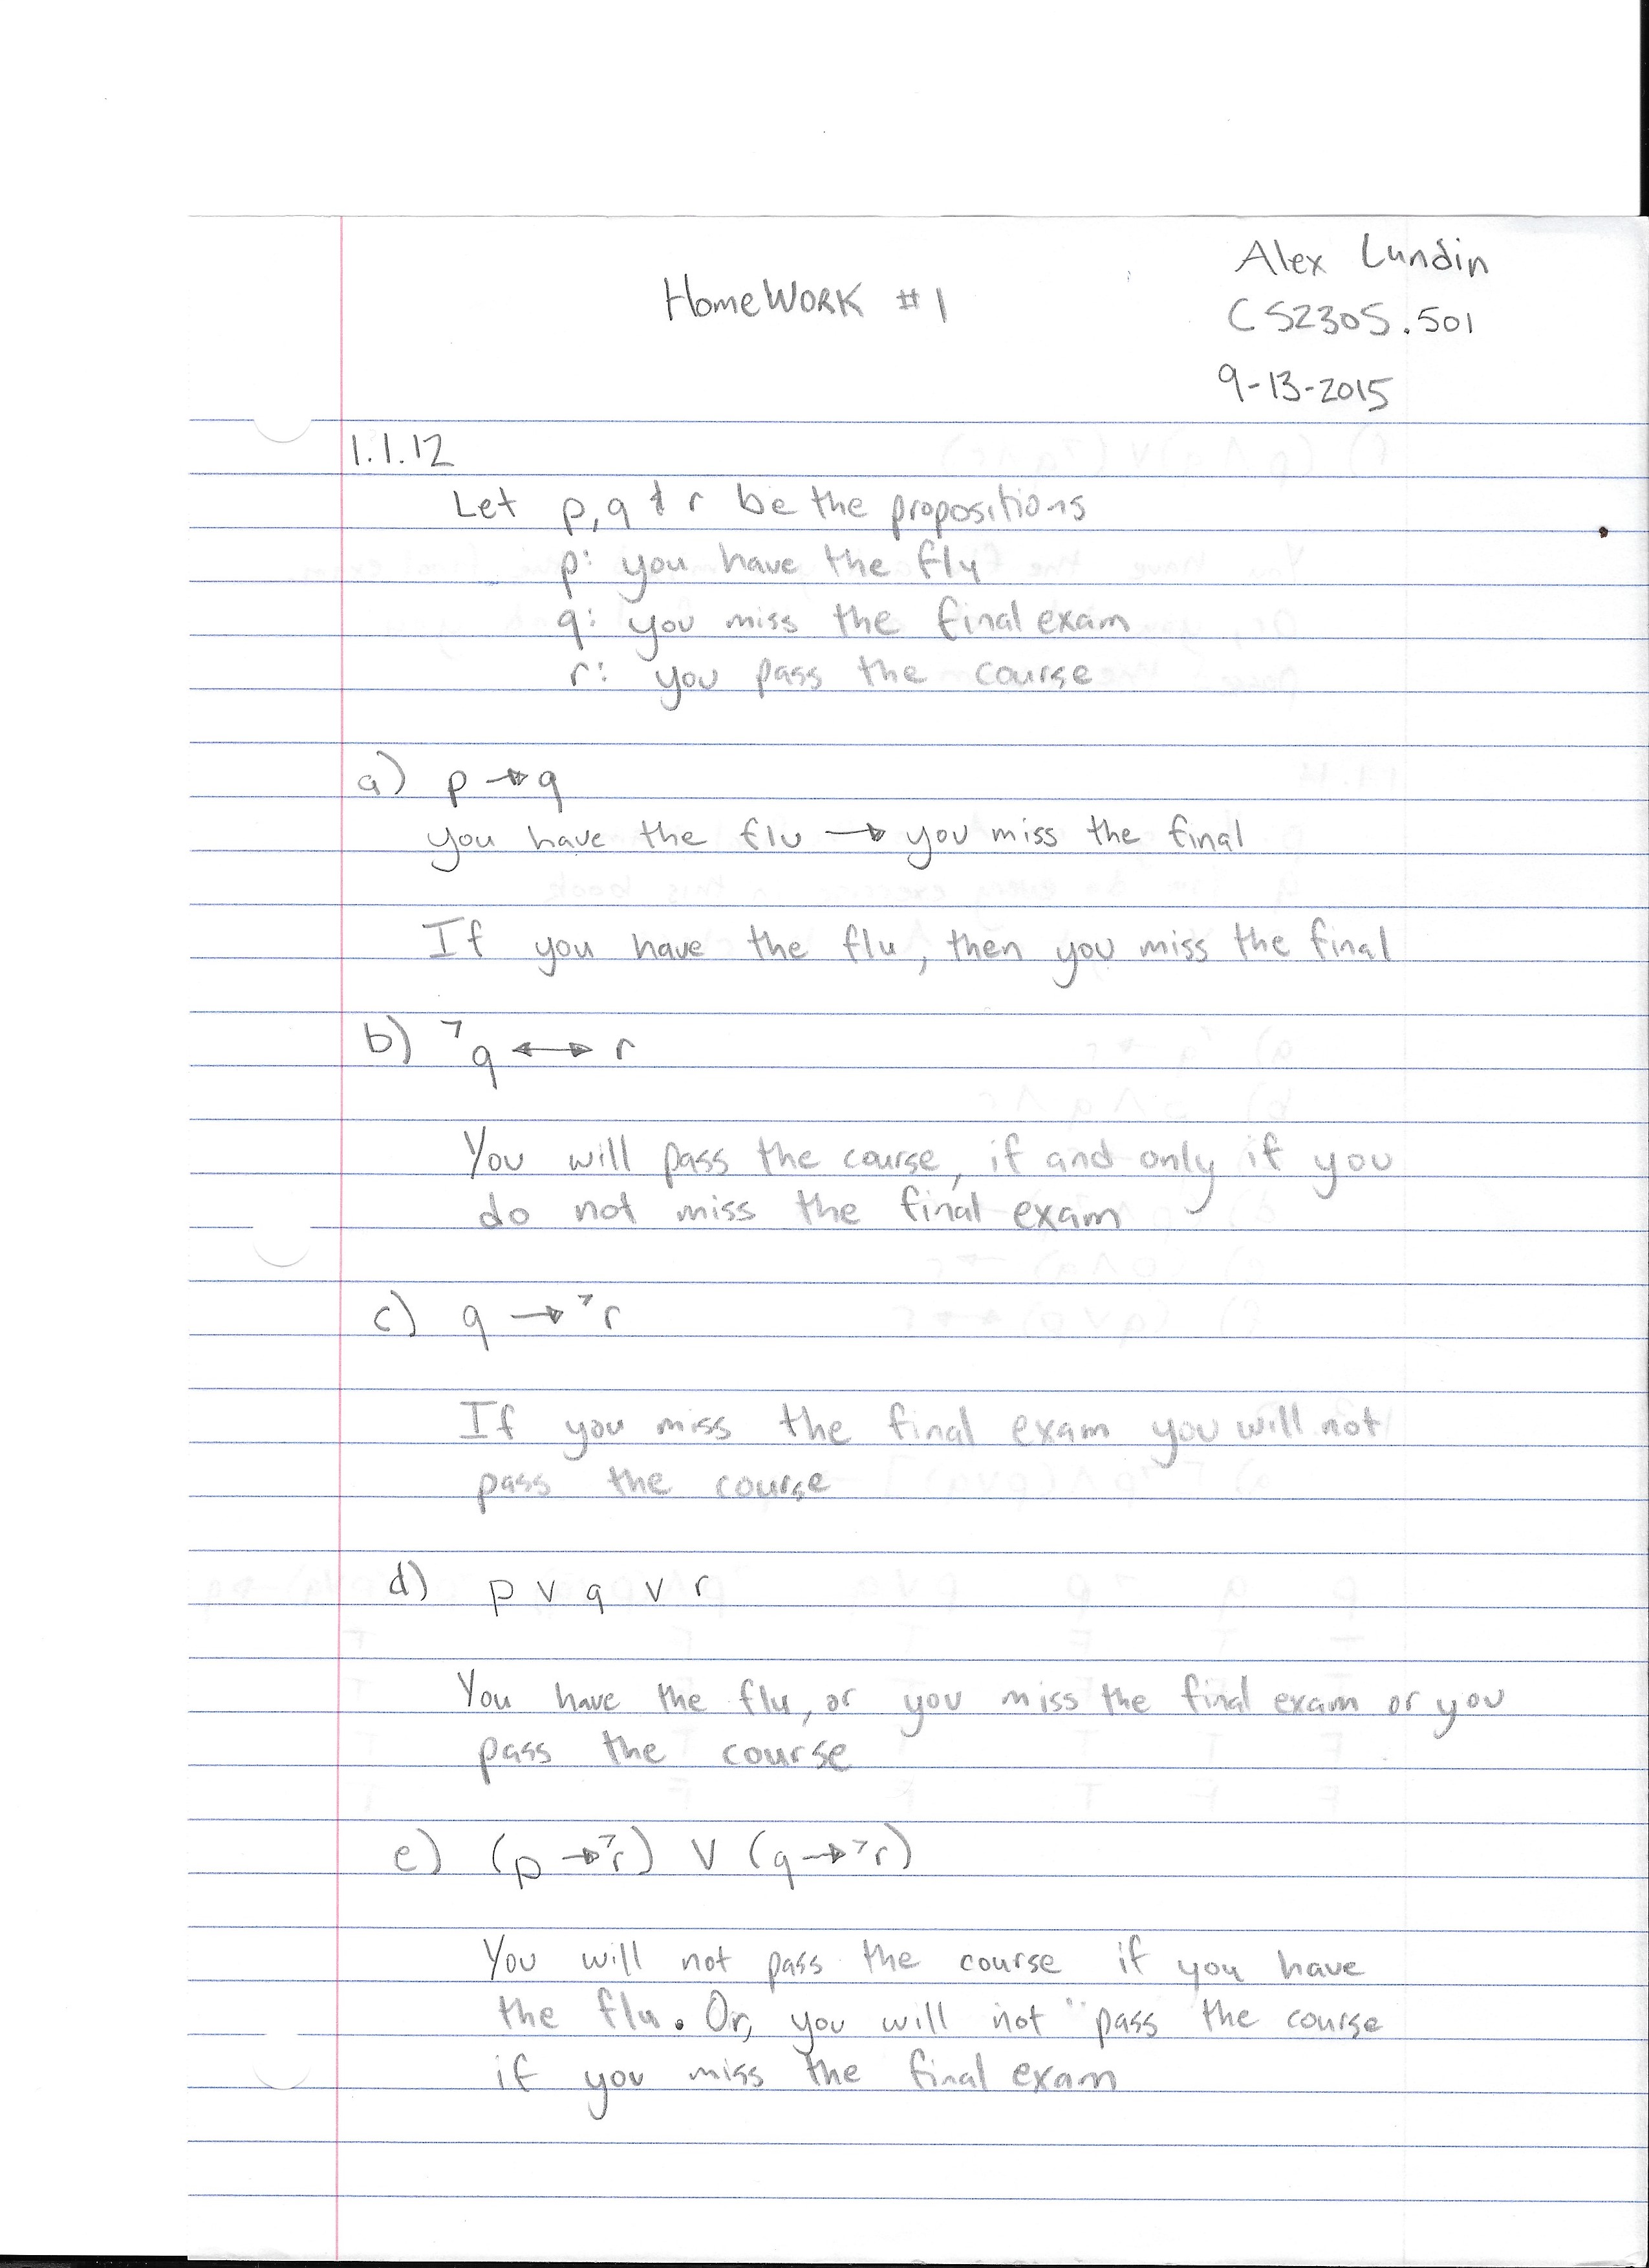 Alex Lundin
HomeWORK #1
CS2305.501
9-13-2015
1.1.12
Let p,q & r be the propositions
p: you have the flu
q: you miss the final exam
r: you pass the course
a) p → q
you have the flu → you miss the final
If you have the flu, then you miss the final
b) ¬q ↔ r
You will pass the course, if and only if you
do not miss the final exam
c) q → ¬r
If you miss the final exam you will not
pass the course
d) p ∨ q ∨ r
You have the flu, or you miss the final exam or you
pass the course
e) (p → ¬r) ∨ (q → ¬r)
You will not pass the course if you have
the flu. Or, you will not pass the course
if you miss the final exam